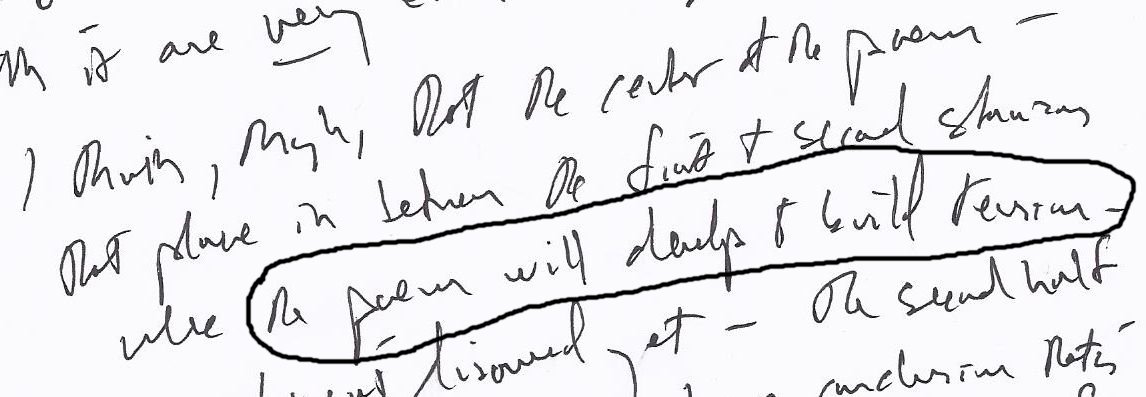 it are very
I think, though, that the center of the poem –
that place in between the first + second stanzas
where the poem will develop + build tension –
discovered yet – the second half
conclusion that's